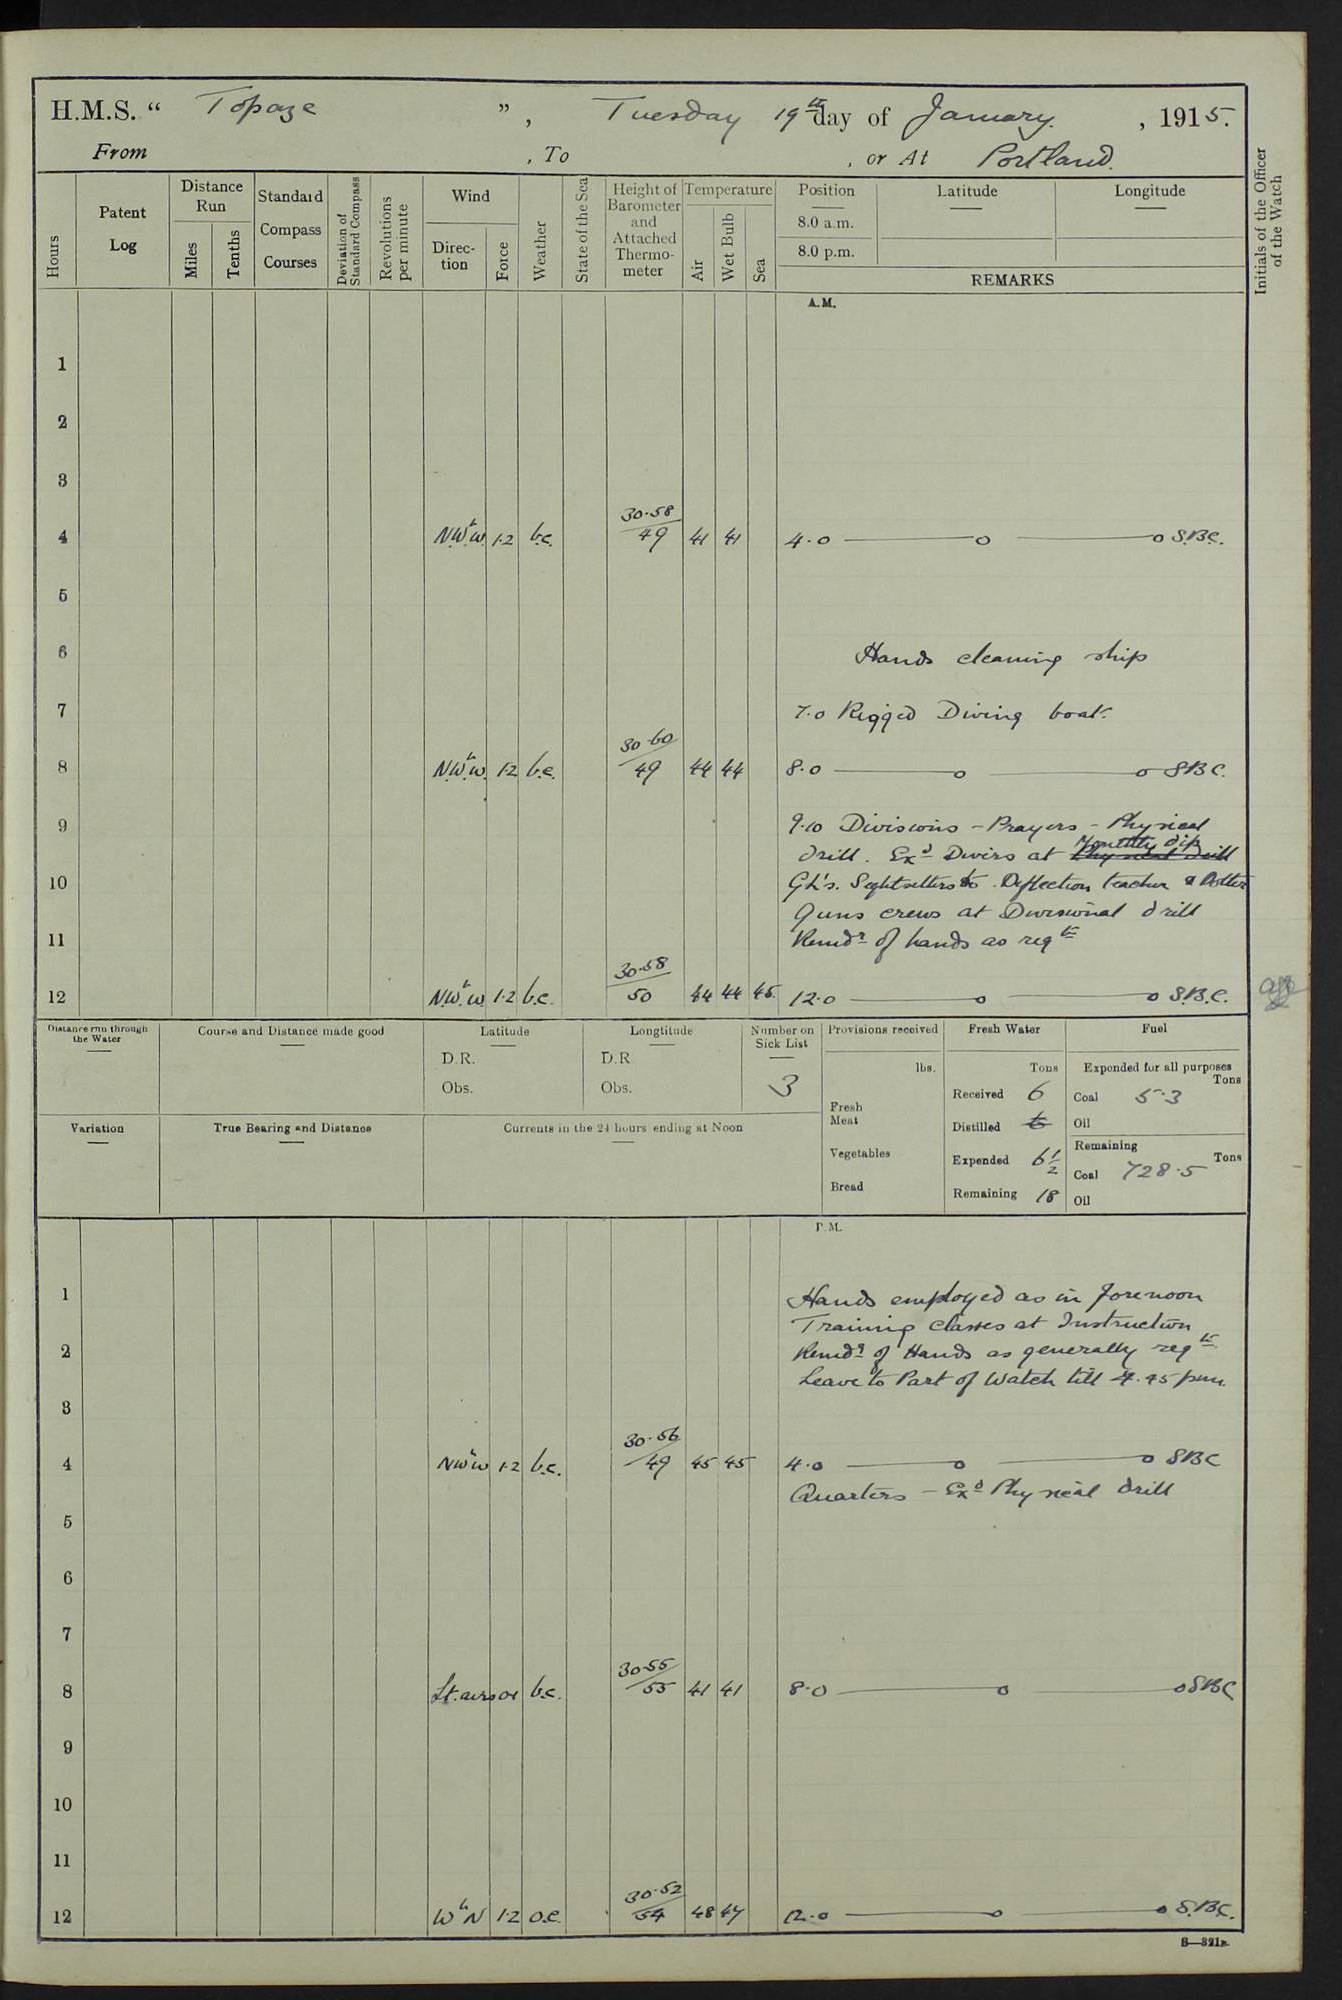 H.M.S. " Topaze ", Tuesday 19th day of January, 1915.
From , To , or At Portland.
Hours
Patent Log
Distance Run
Miles
Tenths
Standard Compass Courses
Deviation of Standard Compass
Revolutions per minute
Wind
Direc-tion
Force
Weather
State of the Sea
Height of Barometer and Attached Thermo-meter
Temperature
Air
Wet Bulb
Sea
Position
8.0 a.m.
8.0 p.m.
Latitude
Longitude
REMARKS
Initials of the Officer of the Watch
A.M.
1
2
3
4 N.W.bW. 1.2 b.c. 30.58/49 41 41 4.0 S.B.C.
5
6 Hands cleaning ship
7 7.0 Rigged Diving boat.
8 N.W.bW. 1.2 b.c. 30.60/49 44 44 8.0 SBC.
9 9.10 Divisions - Prayers - Physical
drill. Exd Divers at Physical drill Monthly dip
10 GL's. Sightsetters to Deflection teacher & Dotter
Guns crews at Divisional drill
11 Remdr of hands as reqte
12 N.W.bW. 1.2 b.c. 30.58/50 44 44 45 12.0 S.B.C.
Distance run through the Water
Course and Distance made good
Latitude
D.R.
Obs.
Longtitude
D.R
Obs.
Number on Sick List
3
Provisions received
lbs.
Fresh Meat
Vegetables
Bread
Fresh Water
Tons
Received 6
Distilled 6
Expended 6 1/2
Remaining 18
Fuel
Expended for all purposes
Tons
Coal 5.3
Oil
Remaining
Tons
Coal 728.5
Oil
Variation
True Bearing and Distance
Currents in the 24 hours ending at Noon
P.M.
1 Hands employed as in forenoon
Training classes at Instruction
2 Remdr of Hands as generally reqte
Leave to Part of Watch till 4.45 pm.
3
4 NWbW 1.2 b.c. 30.56/49 45 45 4.0 SBC
Quarters - Exd Physical drill
5
6
7
8 Lt. airs 01 b.c. 30.55/55 41 41 8.0 SBC
9
10
11
12 WbN 1.2 o.c. 30.52/54 48 47 12.0 S.B.C.
S—321B.